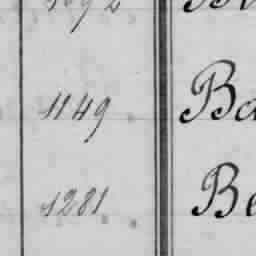 1149 Ba
1281 Be